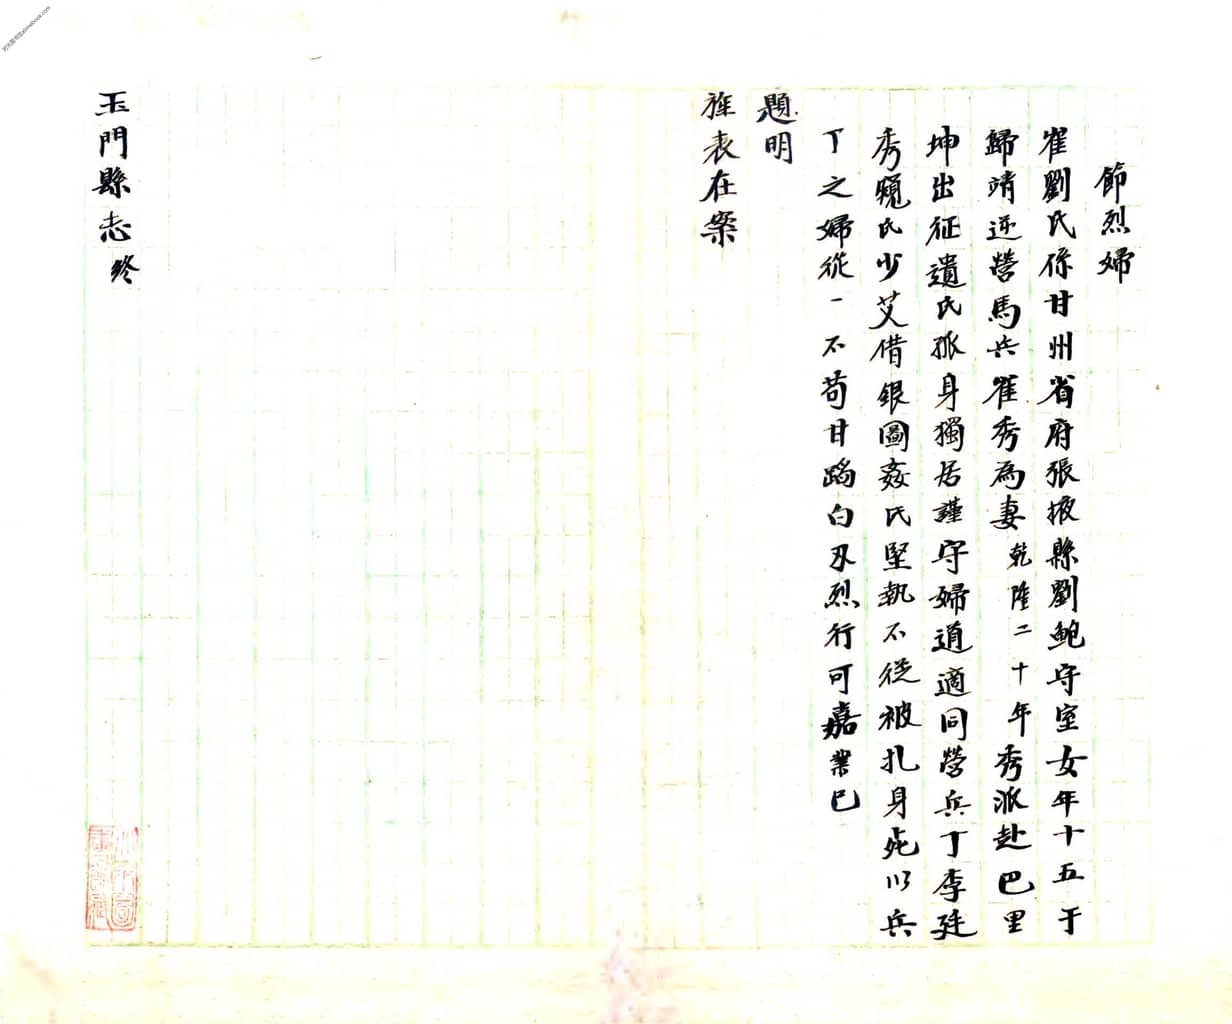 節烈婦
崔劉氏係甘州省府張掖縣劉鮑守室女年十五于
歸靖逆營馬兵崔秀為妻乾隆二十年秀派赴巴里
坤出征遺氏孤身獨居謹守婦道適同營兵丁李廷
秀窺氏少艾借銀圖姦氏堅執不從被扎身死以兵
丁之婦從一不苟甘蹈白刃烈行可嘉業已
題明
旌表在案
玉門縣志終